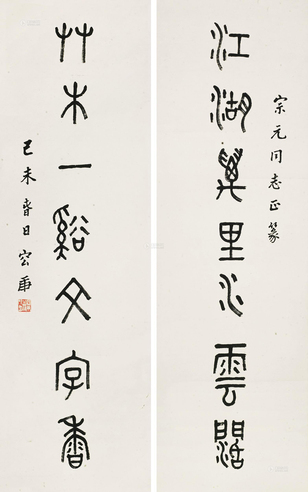 宗元同志正篆
江湖萬里水雲闊
艸木一谿文字香
己未春日容庚